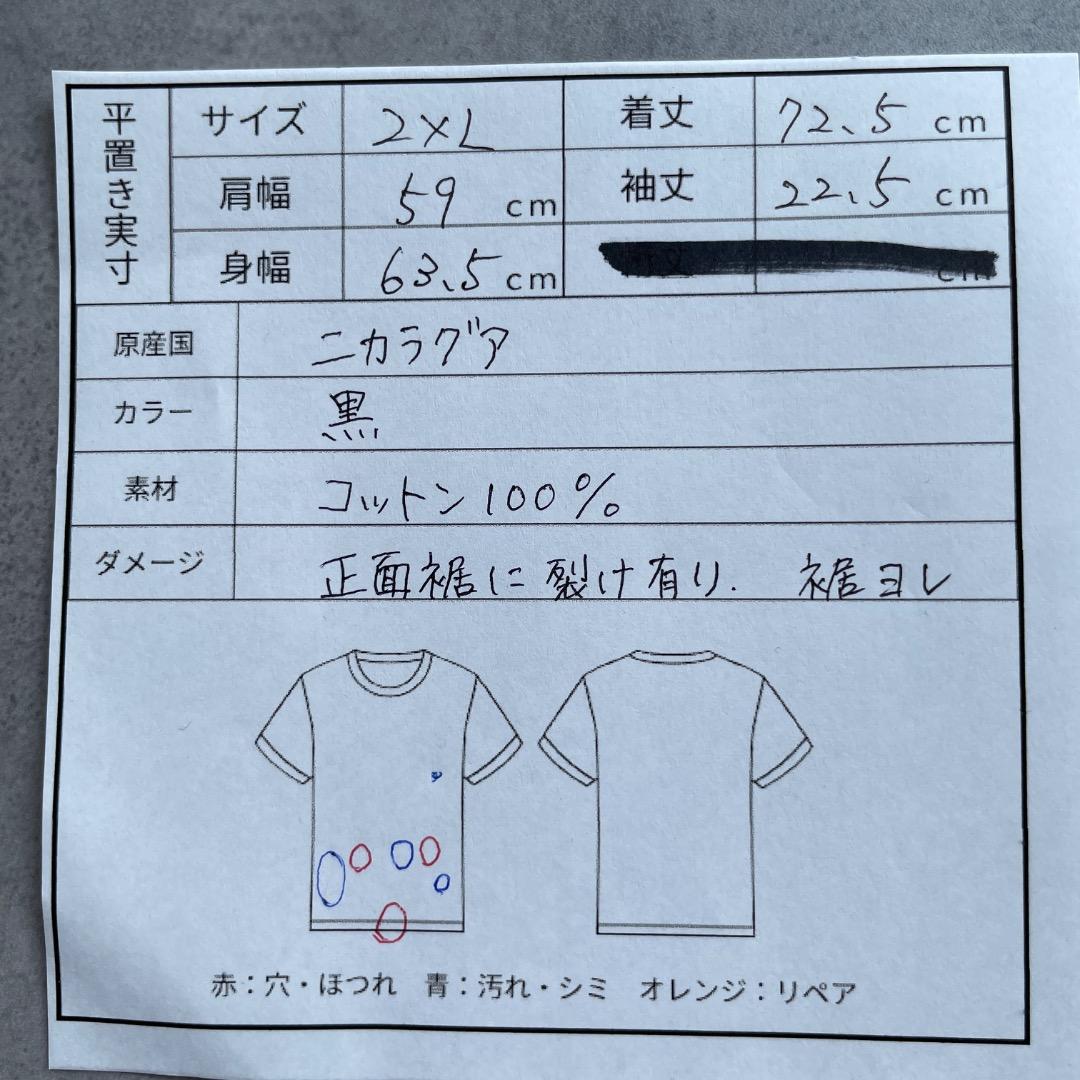 平置き実寸
サイズ 2XL 着丈 72.5 cm
肩幅 59 cm 袖丈 22.5 cm
身幅 63.5 cm cm
原産国 ニカラグア
カラー 黒
素材 コットン 100%
ダメージ 正面裾に裂け有り. 裾ヨレ
赤：穴・ほつれ 青：汚れ・シミ オレンジ：リペア